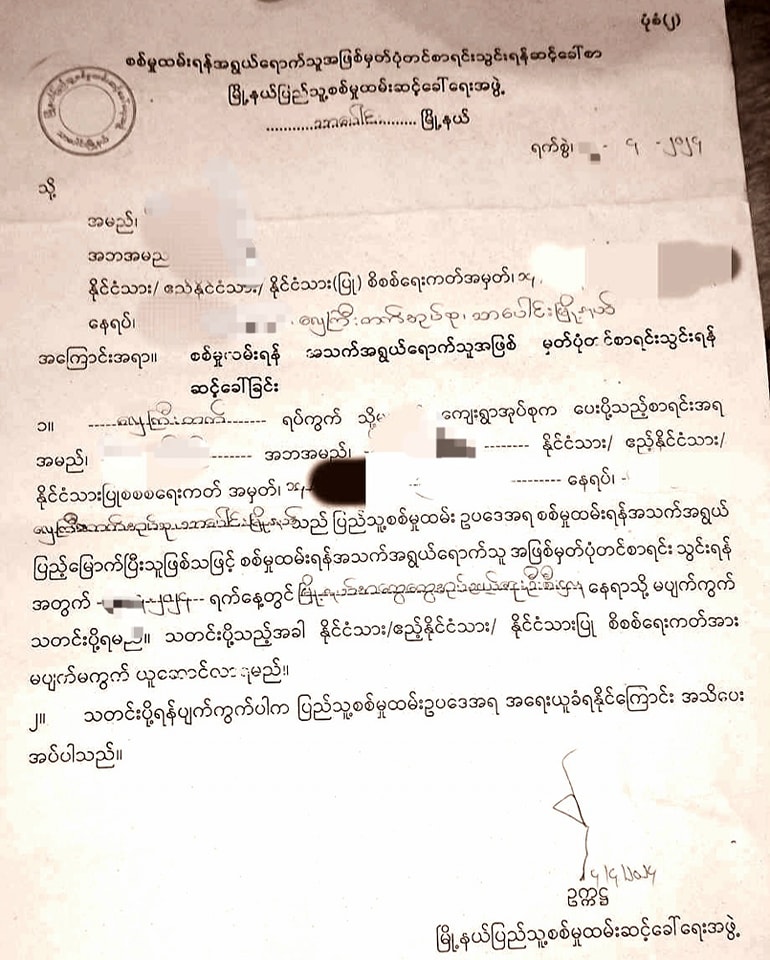 ပုံစံ(၂)
စစ်မှုထမ်းရန်အရွယ်ရောက်သူအဖြစ်မှတ်ပုံတင်စာရင်းသွင်းရန်ဆင့်ခေါ်စာ
မြို့နယ်ပြည်သူ့စစ်မှုထမ်းဆင့်ခေါ်ရေးအဖွဲ့
............သာပေါင်း......... မြို့နယ်
ရက်စွဲ၊ - ၄ -၂၀၂၄
သို့
အမည်၊
အဘအမည်
နိုင်ငံသား/ ဧည့်နိုင်ငံသား/ နိုင်ငံသား(ပြု) စိစစ်ရေးကတ်အမှတ်၊ ၁၄/
နေရပ်၊ လှေကြီးတက်အုပ်စု၊ သာပေါင်းမြို့နယ်
အကြောင်းအရာ။ စစ်မှုထမ်းရန် အသက်အရွယ်ရောက်သူအဖြစ် မှတ်ပုံတင်စာရင်းသွင်းရန်
ဆင့်ခေါ်ခြင်း
၁။ -----လှေကြီးတက်------- ရပ်ကွက် သို့မ ကျေးရွာအုပ်စုက ပေးပို့သည့်စာရင်းအရ
အမည်၊ ------- အဘအမည်၊ -------- နိုင်ငံသား/ ဧည့်နိုင်ငံသား/
နိုင်ငံသားပြုစိစစ်ရေးကတ် အမှတ်၊ ၁၄/ ---------- နေရပ်၊ -
လှေကြီးတက်အုပ်စု၊ သာပေါင်းမြို့နယ်သည် ပြည်သူ့စစ်မှုထမ်း ဥပဒေအရ စစ်မှုထမ်းရန်အသက်အရွယ်
ပြည့်မြောက်ပြီးသူဖြစ်သဖြင့် စစ်မှုထမ်းရန်အသက်အရွယ်ရောက်သူ အဖြစ်မှတ်ပုံတင်စာရင်း သွင်းရန်
အတွက် -၂၀၂၄-- ရက်နေ့တွင် မြို့နယ်အထွေထွေအုပ်ချုပ်ရေးဦးစီးဌာန နေရာသို့ မပျက်ကွက်
သတင်းပို့ရမည်။ သတင်းပို့သည့်အခါ နိုင်ငံသား/ဧည့်နိုင်ငံသား/ နိုင်ငံသားပြု စိစစ်ရေးကတ်အား
မပျက်မကွက် ယူဆောင်လာရမည်။
၂။ သတင်းပို့ရန်ပျက်ကွက်ပါက ပြည်သူ့စစ်မှုထမ်းဥပဒေအရ အရေးယူခံရနိုင်ကြောင်း အသိပေး
အပ်ပါသည်။
၄/၄/၂၀၂၄
ဥက္ကဋ္ဌ
မြို့နယ်ပြည်သူ့စစ်မှုထမ်းဆင့်ခေါ်ရေးအဖွဲ့